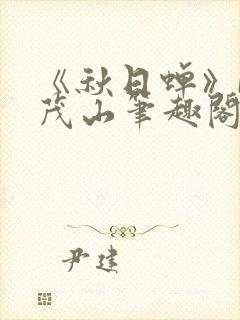 《秋日蝉》
茂山笔趣阁
尹建